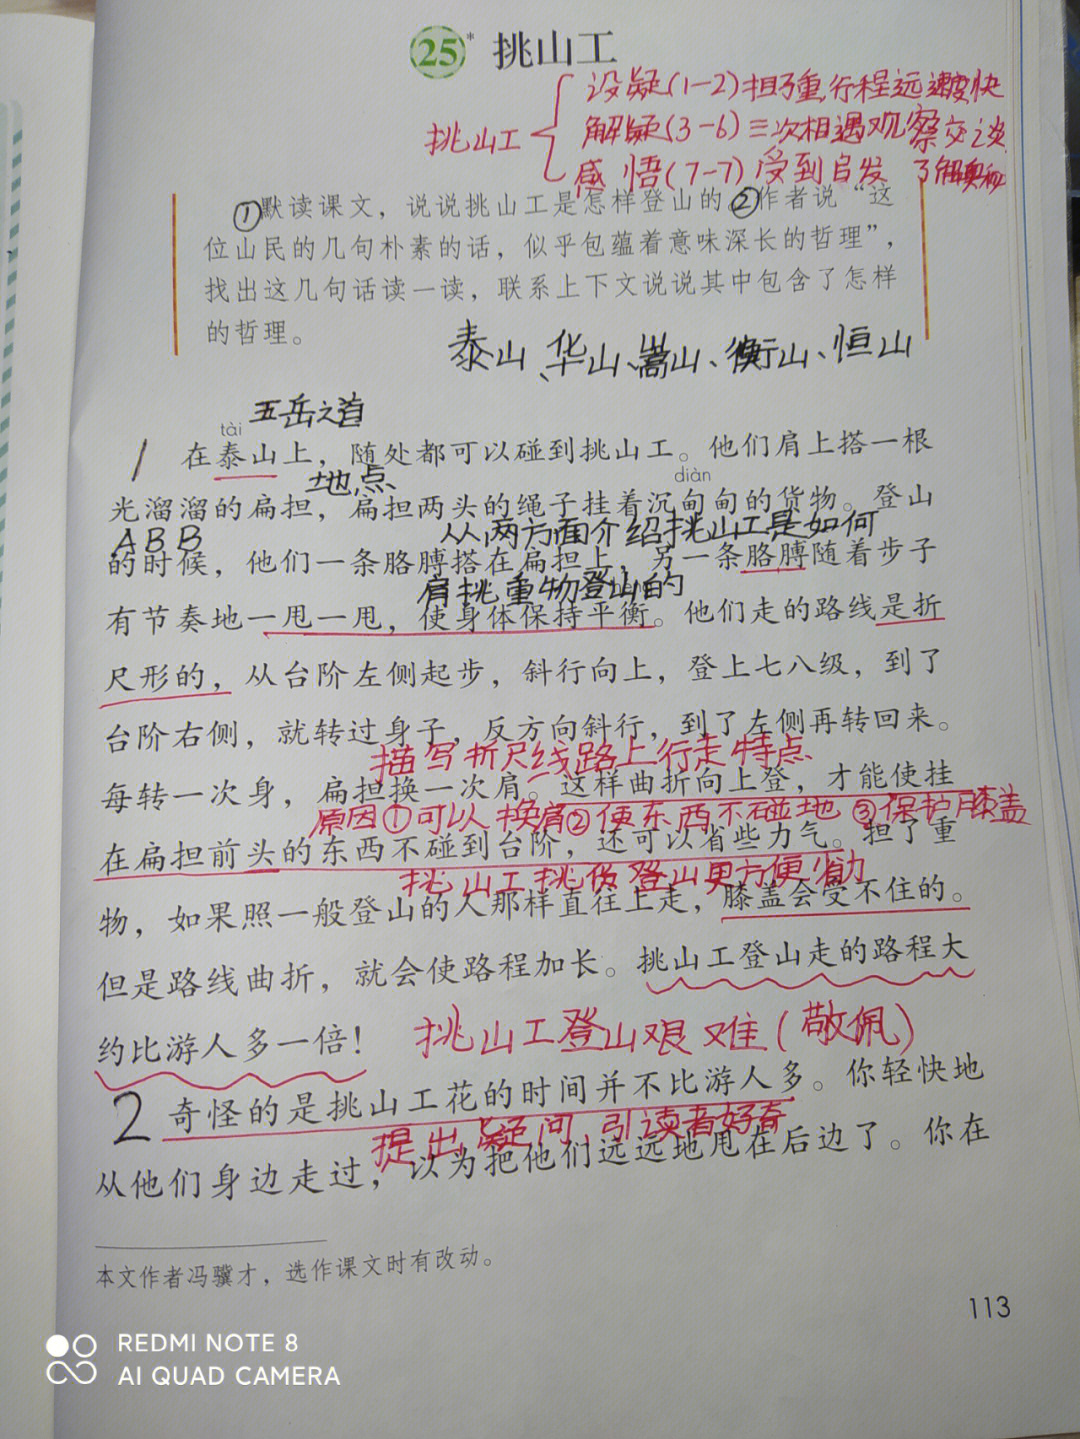 25* 挑山工
设疑(1-2)担子重,行程远速度快
挑山工 解疑(3-6)三次相遇观察交谈
感悟(7-7)受到启发 了解奥秘
①默读课文，说说挑山工是怎样登山的②作者说“这
位山民的几句朴素的话，似乎包蕴着意味深长的哲理”，
找出这几句话读一读，联系上下文说说其中包含了怎样
的哲理。
泰山、华山、嵩山、衡山、恒山
五岳之首
tài
1 在泰山上，随处都可以碰到挑山工。他们肩上搭一根
地点
diàn
光溜溜的扁担，扁担两头的绳子挂着沉甸甸的货物。登山
ABB 从两方面介绍挑山工是如何
的时候，他们一条胳膊搭在扁担上，另一条胳膊随着步子
肩挑重物登山的
有节奏地一甩一甩，使身体保持平衡。他们走的路线是折
尺形的，从台阶左侧起步，斜行向上，登上七八级，到了
台阶右侧，就转过身子，反方向斜行，到了左侧再转回来。
描写折尺线路上行走特点
每转一次身，扁担换一次肩。这样曲折向上登，才能使挂
原因①可以换肩②使东西不碰地③保护膝盖
在扁担前头的东西不碰到台阶，还可以省些力气。担了重
挑山工挑货登山更方便省力
物，如果照一般登山的人那样直往上走，膝盖会受不住的。
但是路线曲折，就会使路程加长。挑山工登山走的路程大
约比游人多一倍！ 挑山工登山艰难(敬佩)
2 奇怪的是挑山工花的时间并不比游人多。你轻快地
提出疑问,引读者好奇
从他们身边走过，以为把他们远远地甩在后边了。你在
本文作者冯骥才，选作课文时有改动。
113
REDMI NOTE 8
AI QUAD CAMERA